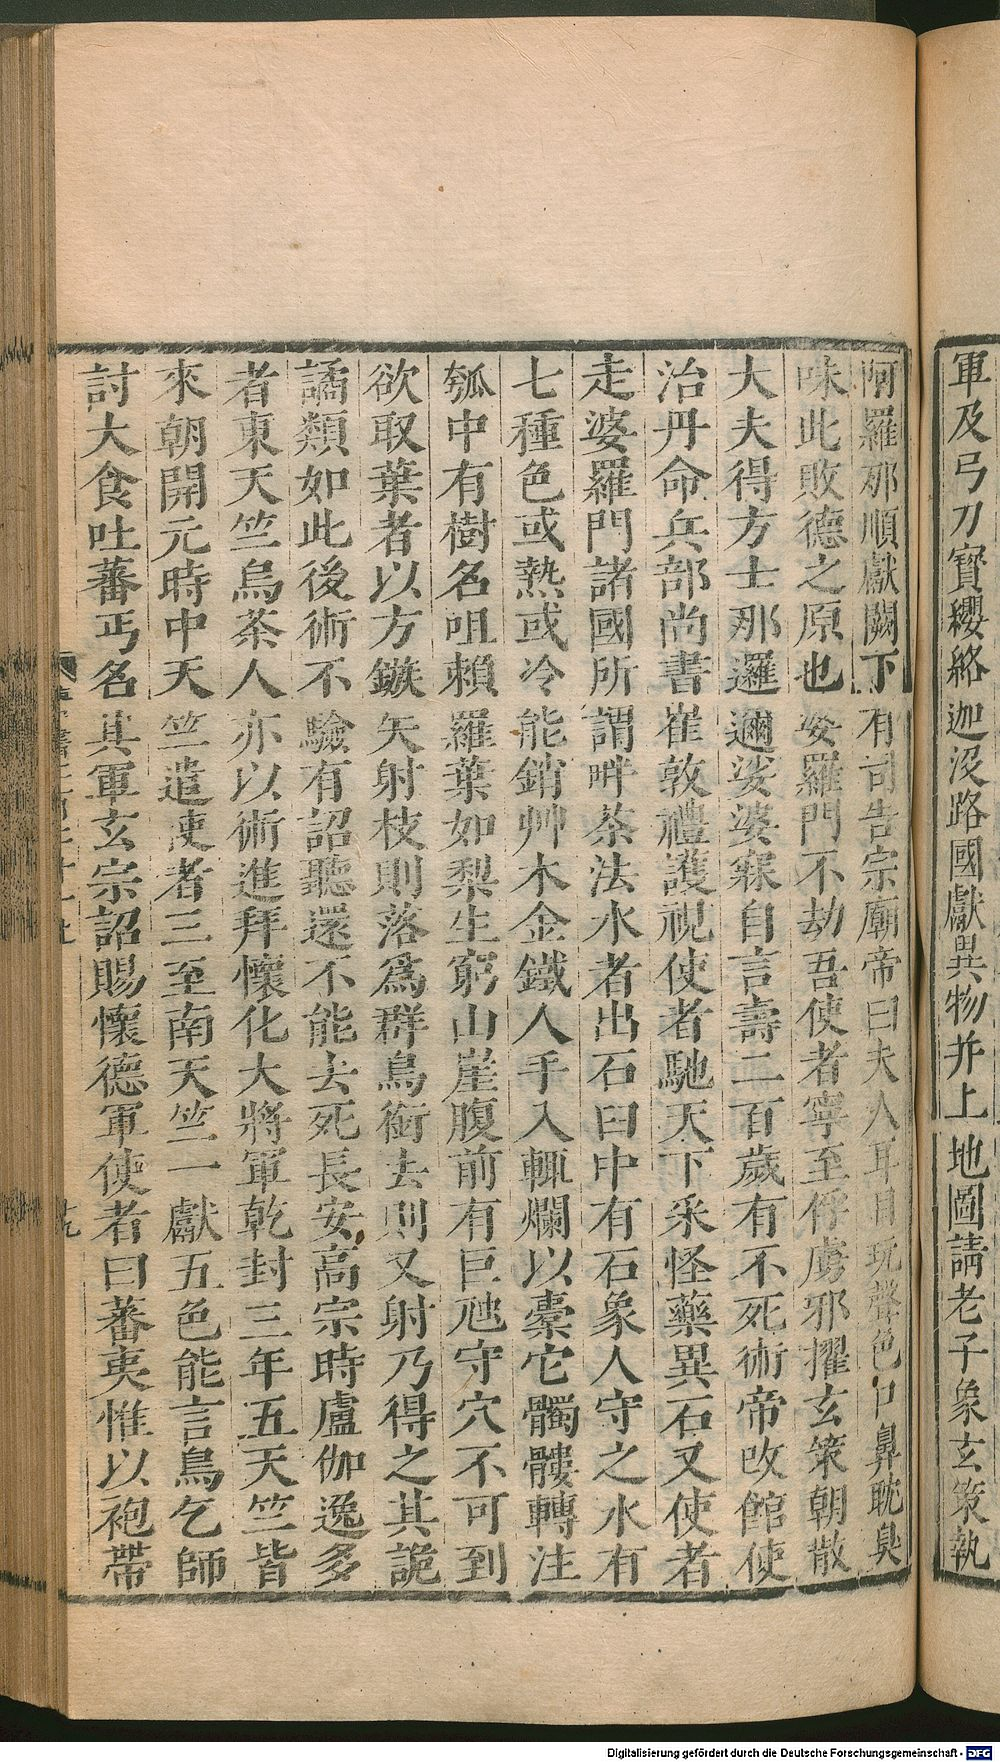 軍及弓刀寳纓絡迦没路國獻異物并上地圖請老子象玄策執
阿羅那順獻闕下有司告宗廟帝曰夫人耳目玩聲色口鼻耽臭
味此敗德之原也婆羅門不劫吾使者寧至俘虜邪擢玄策朝散
大夫得方士那邏邇娑婆寐自言壽二百歲有不死術帝改館使
治丹命兵部尚書崔敦禮護視使者馳天下采怪藥異石又使者
走婆羅門諸國所謂畔茶法水者出石臼中有石象人守之水有
七種色或熱或冷能銷艸木金鐵人手入輒爛以橐它髑髏轉注
瓠中有樹名咀賴羅葉如梨生窮山崖腹前有巨虺守穴不可到
欲取葉者以方鏃矢射枝則落爲群鳥銜去則又射乃得之其詭
譎類如此後術不驗有詔聽還不能去死長安高宗時盧伽逸多
者東天竺烏茶人亦以術進拜懷化大將軍乾封三年五天竺皆
來朝開元時中天竺遣使者三至南天竺一獻五色能言鳥乞師
討大食吐蕃丐名其軍玄宗詔賜懷德軍使者曰蕃夷惟以袍帶
十九
Digitalisierung gefördert durch die Deutsche Forschungsgemeinschaft - DFG